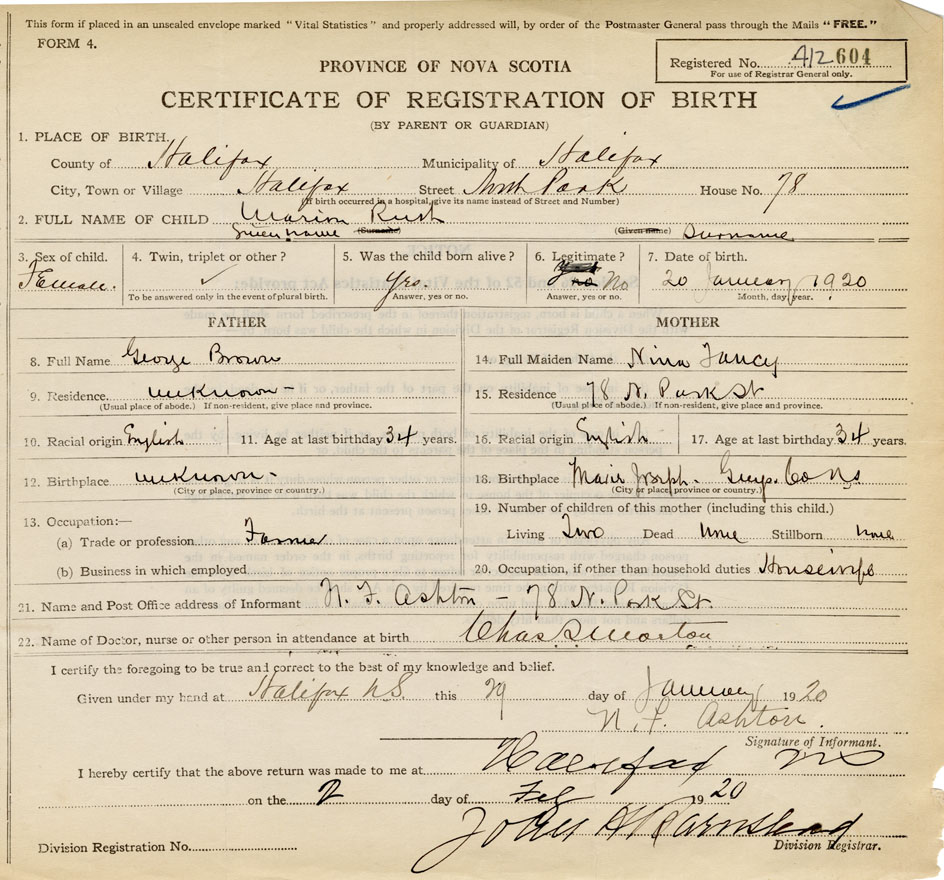 This form if placed in an unsealed envelope marked "Vital Statistics" and properly addressed will, by order of the Postmaster General pass through the Mails "FREE."
FORM 4.
Registered No. 412 604
For use of Registrar General only.
PROVINCE OF NOVA SCOTIA
CERTIFICATE OF REGISTRATION OF BIRTH
(BY PARENT OR GUARDIAN)
1. PLACE OF BIRTH.
County of Halifax Municipality of Halifax
City, Town or Village Halifax Street North Park House No. 78
(If birth occurred in a hospital, give its name instead of Street and Number)
2. FULL NAME OF CHILD Marion Rush
Given name (Surname) (Given name) Surname
3. Sex of child. 4. Twin, triplet or other? 5. Was the child born alive? 6. Legitimate? 7. Date of birth:
Female. ✓ Yes. No 20 January 1920
To be answered only in the event of plural birth. Answer, yes or no. Answer, yes or no. Month, day, year.
FATHER MOTHER
8. Full Name George Brown 14. Full Maiden Name Nina Fancy
9. Residence. unknown - 15. Residence 78 N. Park St
(Usual place of abode.) If non-resident, give place and province. (Usual place of abode.) If non-resident, give place and province.
10. Racial origin English 11. Age at last birthday 34 years. 16. Racial origin English 17. Age at last birthday 34 years.
12. Birthplace unknown - 18. Birthplace Marie Joseph - Guys. Co NS
(City or place, province or country.) (City or place, province or country.)
13. Occupation:— 19. Number of children of this mother (including this child.)
(a) Trade or profession Farmer Living Two Dead None Stillborn none
(b) Business in which employed 20. Occupation, if other than household duties Housewife
21. Name and Post Office address of Informant N. F. Ashton - 78 N. Park St.
22. Name of Doctor, nurse or other person in attendance at birth Chas S Morton
I certify the foregoing to be true and correct to the best of my knowledge and belief.
Given under my hand at Halifax N.S. this 29 day of January 1920
N. F. Ashton.
Signature of Informant.
I hereby certify that the above return was made to me at Halifax NS
on the 2 day of Feb 1920
John A
Division Registration No. Division Registrar.